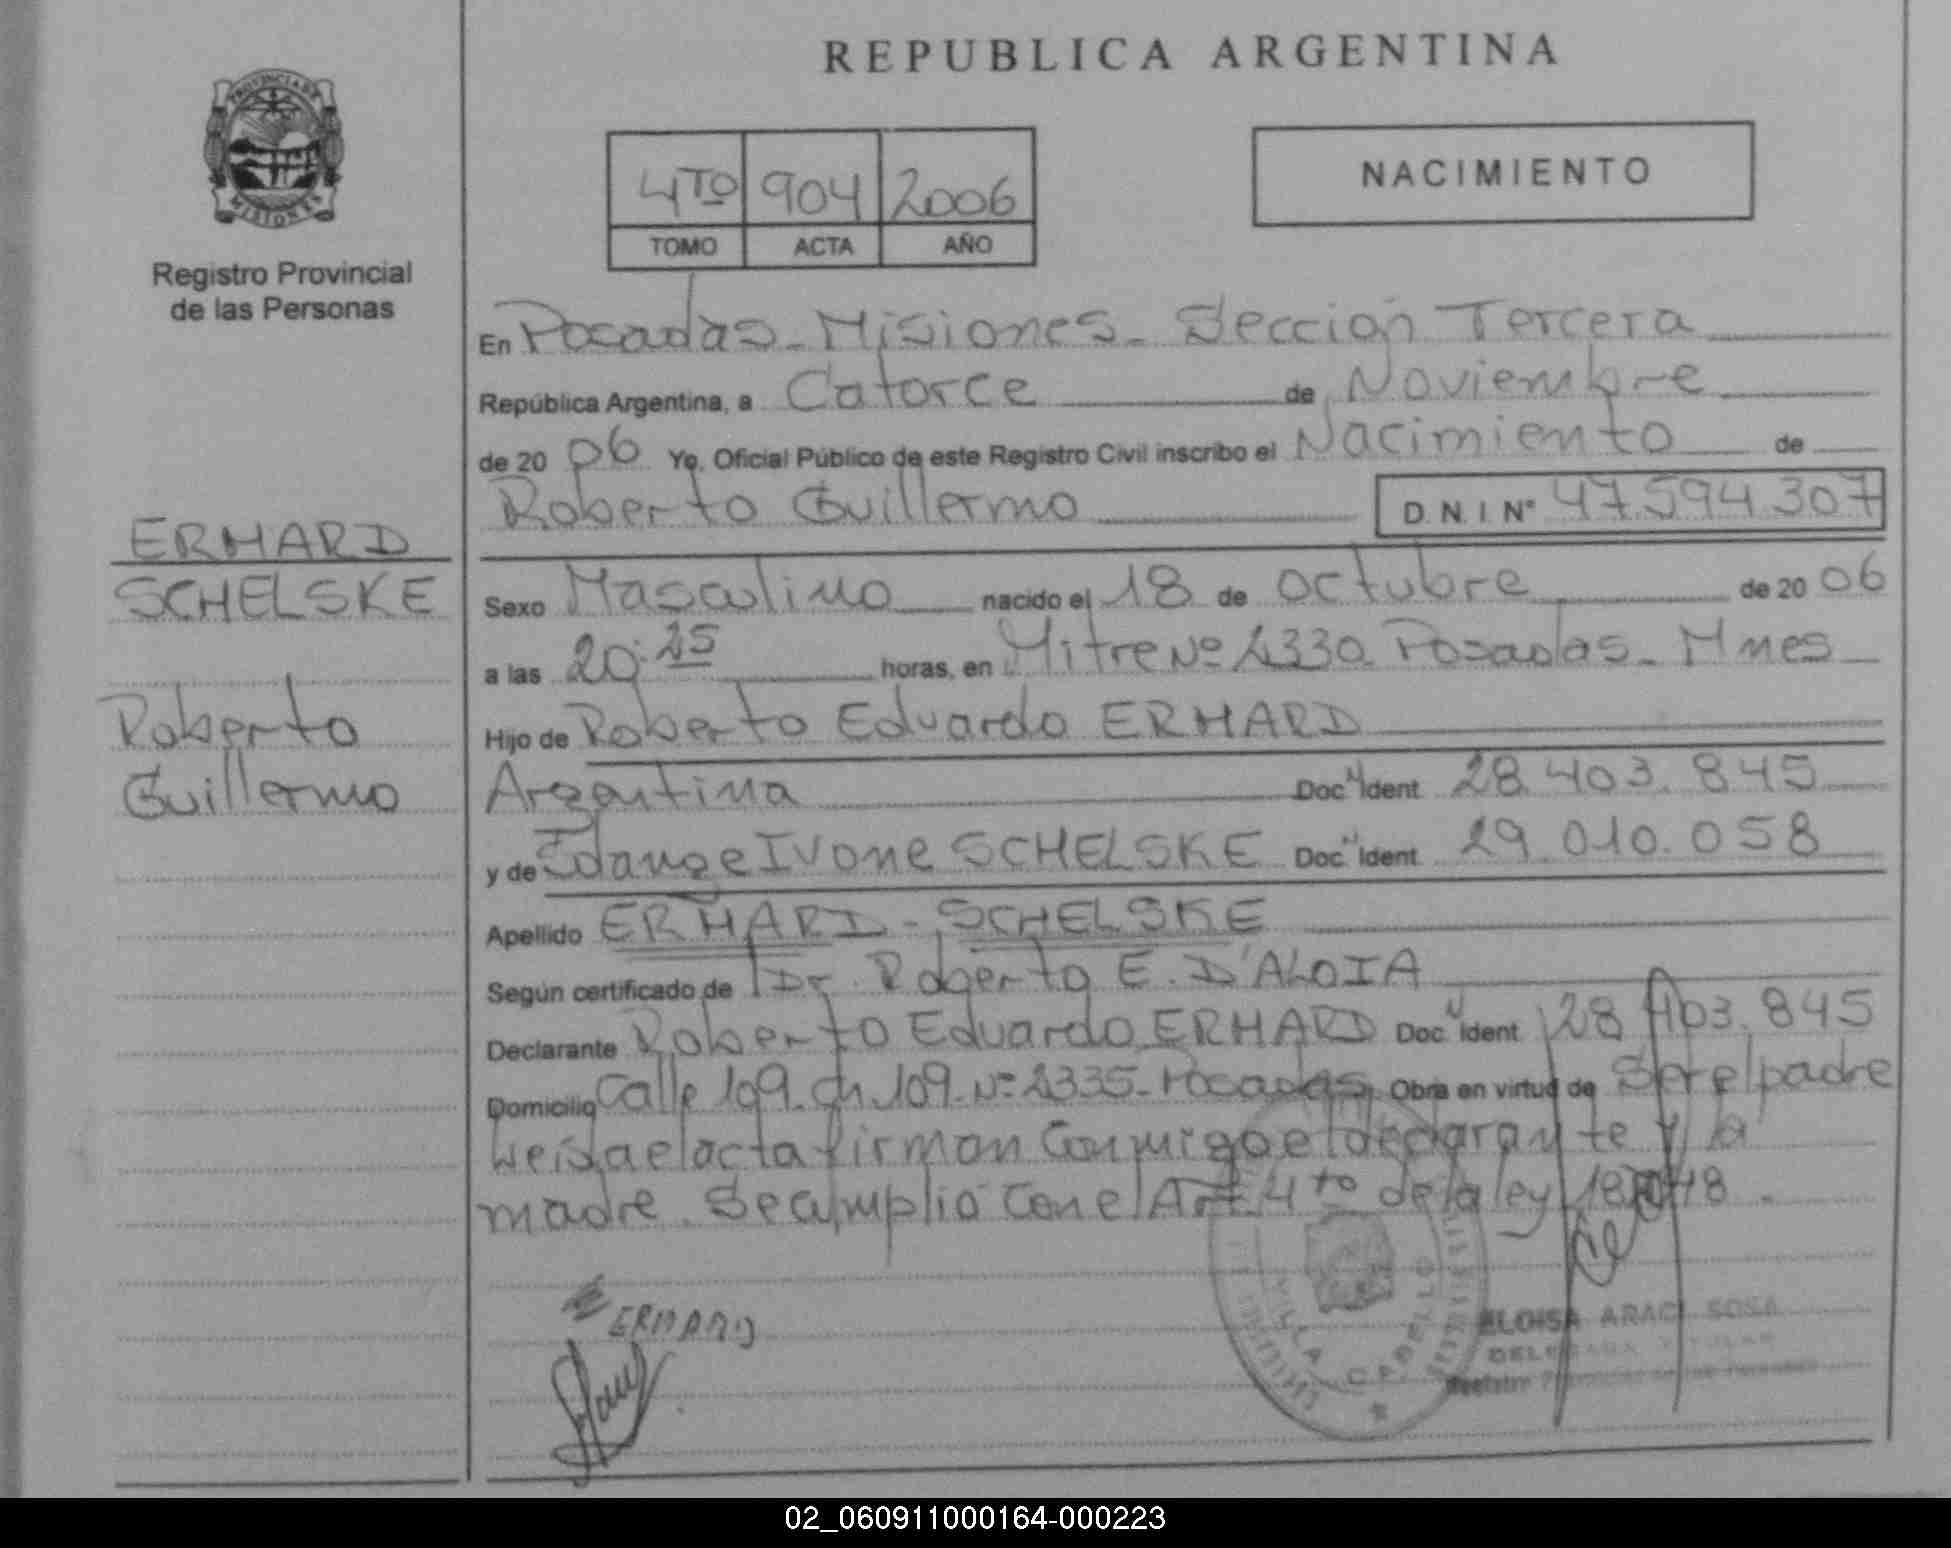 REPUBLICA ARGENTINA
PROVINCIA DE
MISIONES
Registro Provincial
de las Personas
4TO 904 2006
TOMO ACTA AÑO
NACIMIENTO
En Posadas - Misiones - Sección Tercera
República Argentina, a Catorce de Noviembre
de 20 06 Yo, Oficial Público de este Registro Civil inscribo el Nacimiento de
Roberto Guillermo D.N.I. Nº 47.594.307
ERHARD
SCHELSKE
Roberto
Guillermo
Sexo Masculino nacido el 18 de octubre de 20 06
a las 20:25 horas, en Mitre Nº 2330. Posadas - Mnes
Hijo de Roberto Eduardo ERHARD
Argentina Doc. Ident 28.403.845
y de Edange Ivone SCHELSKE Doc. Ident 29.010.058
Apellido ERHARD - SCHELSKE
Según certificado de Dr. Roberto E. D'ALOIA
Declarante Roberto Eduardo ERHARD Doc. Ident 28.403.845
Domicilio Calle 109. Ch 109. Nº 2335 - Posadas. Obra en virtud de Ser el padre
Leída el acta firman Conmigo el declarante y la
madre. Se cumplió Con el Art 4to de la ley 18.248.
ERHARD
VILLA CABELLO
ELOISA ARACI SOSA
DELEGADA TITULAR
Registro Provincial de las Personas
02_060911000164-000223